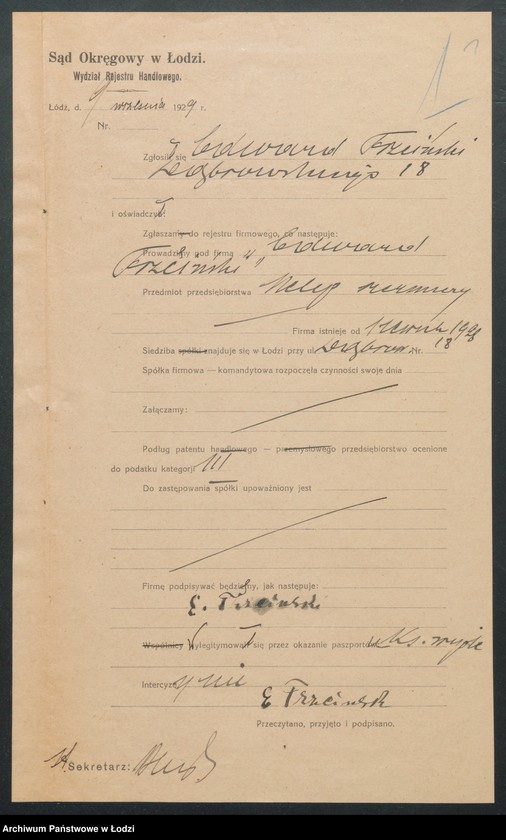 Sąd Okręgowy w Łodzi.
Wydział Rejestru Handlowego.
Łódź, d. września 1929 r.
Nr.
Zgłosił się Edward Trzciński
Dąbrowskiego 18
i oświadczył
Zgłaszamy do rejestru firmowego, co następuje:
Prowadzimy pod firmą „Edward
Trzciński"
Przedmiot przedsiębiorstwa sklep rzeźniczy
Firma istnieje od 1928
Siedziba spółki znajduje się w Łodzi przy ul. Dąbrow. Nr. 18
Spółka firmowa — komandytowa rozpoczęła czynności swoje dnia
Załączamy:
Podług patentu handlowego — przemysłowego przedsiębiorstwo ocenione
do podatku kategorji III
Do zastępowania spółki upoważniony jest
Firmę podpisywać będziemy, jak następuje:
E. Trzciński
Wspólnicy wylegitymowali się przez okazanie paszportów Ks. wojsk
Intercyzy nie
E Trzciński
Przeczytano, przyjęto i podpisano.
Sekretarz:
Archiwum Państwowe w Łodzi